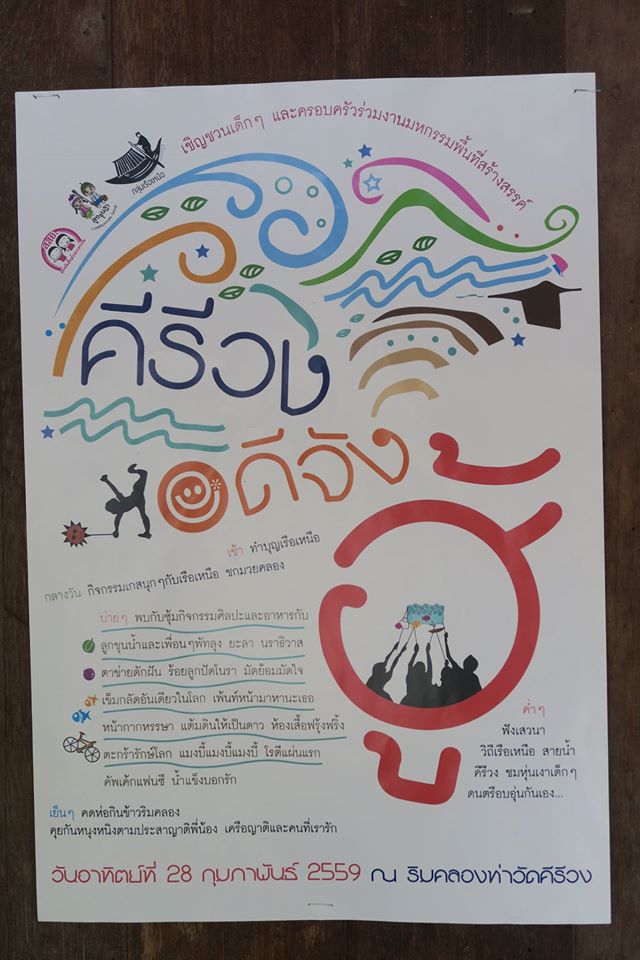 เชิญชวนเด็กๆ และครอบครัวร่วมงานมหกรรมพื้นที่สร้างสรรค์
กลุ่มเรือเหนือ
ลูกขุนน้ำ
สสย
คีรีวง
ดีจัง
ฮู้
เช้า ทำบุญเรือเหนือ
กลางวัน กิจกรรมเกสนุกๆกับเรือเหนือ ชกมวยคลอง
บ่ายๆ พบกับซุ้มกิจกรรมศิลปะและอาหารกับ
ลูกขุนน้ำและเพื่อนๆพัทลุง ยะลา นราธิวาส
ตาข่ายดักฝัน ร้อยลูกปัดโนรา มัดย้อมมัดใจ
เข็มกลัดอันเดียวในโลก เพ้นท์หน้ามาหานะเธอ
หน้ากากหรรษา แต้มดินให้เป็นดาว ห้องเสื้อฟรุ้งฟริ้ง
ตะกร้ารักษ์โลก แมงบี้แมงบี้แมงบี้ โรตีแผ่นแรก
คัพเค้กแฟนซี น้ำแข็งบอกรัก
ค่ำๆ
ฟังเสวนา
วิถีเรือเหนือ สายน้ำ
คีรีวง ชมหุ่นเงาเด็กๆ
ดนตรีอบอุ่นกันเอง...
เย็นๆ คดห่อกินข้าวริมคลอง
คุยกันหนุงหนิงตามประสาญาติพี่น้อง เครือญาติและคนที่เรารัก
วันอาทิตย์ที่ 28 กุมภาพันธ์ 2559 ณ ริมคลองท่าวัดคีรีวง